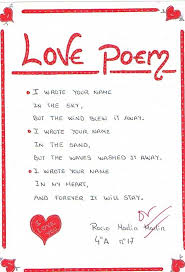 LOVE POEM
I WROTE YOUR NAME
IN THE SKY,
BUT THE WIND BLEW IT AWAY.
I WROTE YOUR NAME
IN THE SAND,
BUT THE WAVES WASHED IT AWAY.
I WROTE YOUR NAME
IN MY HEART,
AND FOREVER IT WILL STAY.
I Love You
Rocío
4ºA nº17